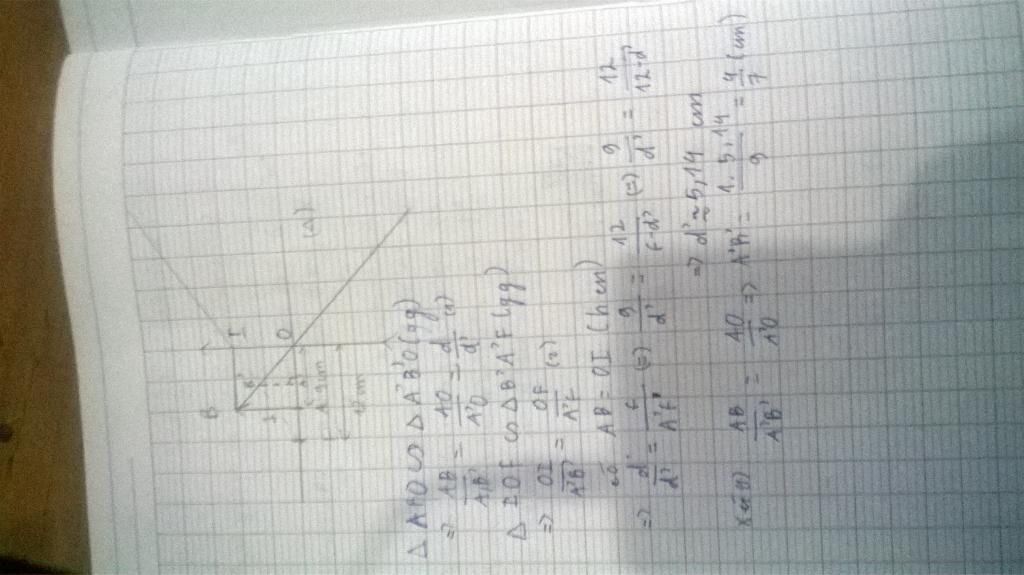 B
I
O
(Δ)
9cm
12cm
Δ ABO ∽ Δ A'B'O (gg)
=> AB/A'B' = AO/A'O = d/d' (1)
Δ IOF ∽ Δ B'A'F (gg)
=> OI/A'B' = OF/A'F (2)
có AB = OI (hcn)
=> d/d' = f/A'F (=) 9/d' = 12/f-d' (=) 9/d' = 12/12-d'
=> d' ≈ 5,14 cm
AB/A'B' = AO/A'O => A'B' = 1.5,14/9 = 4/7 (cm)